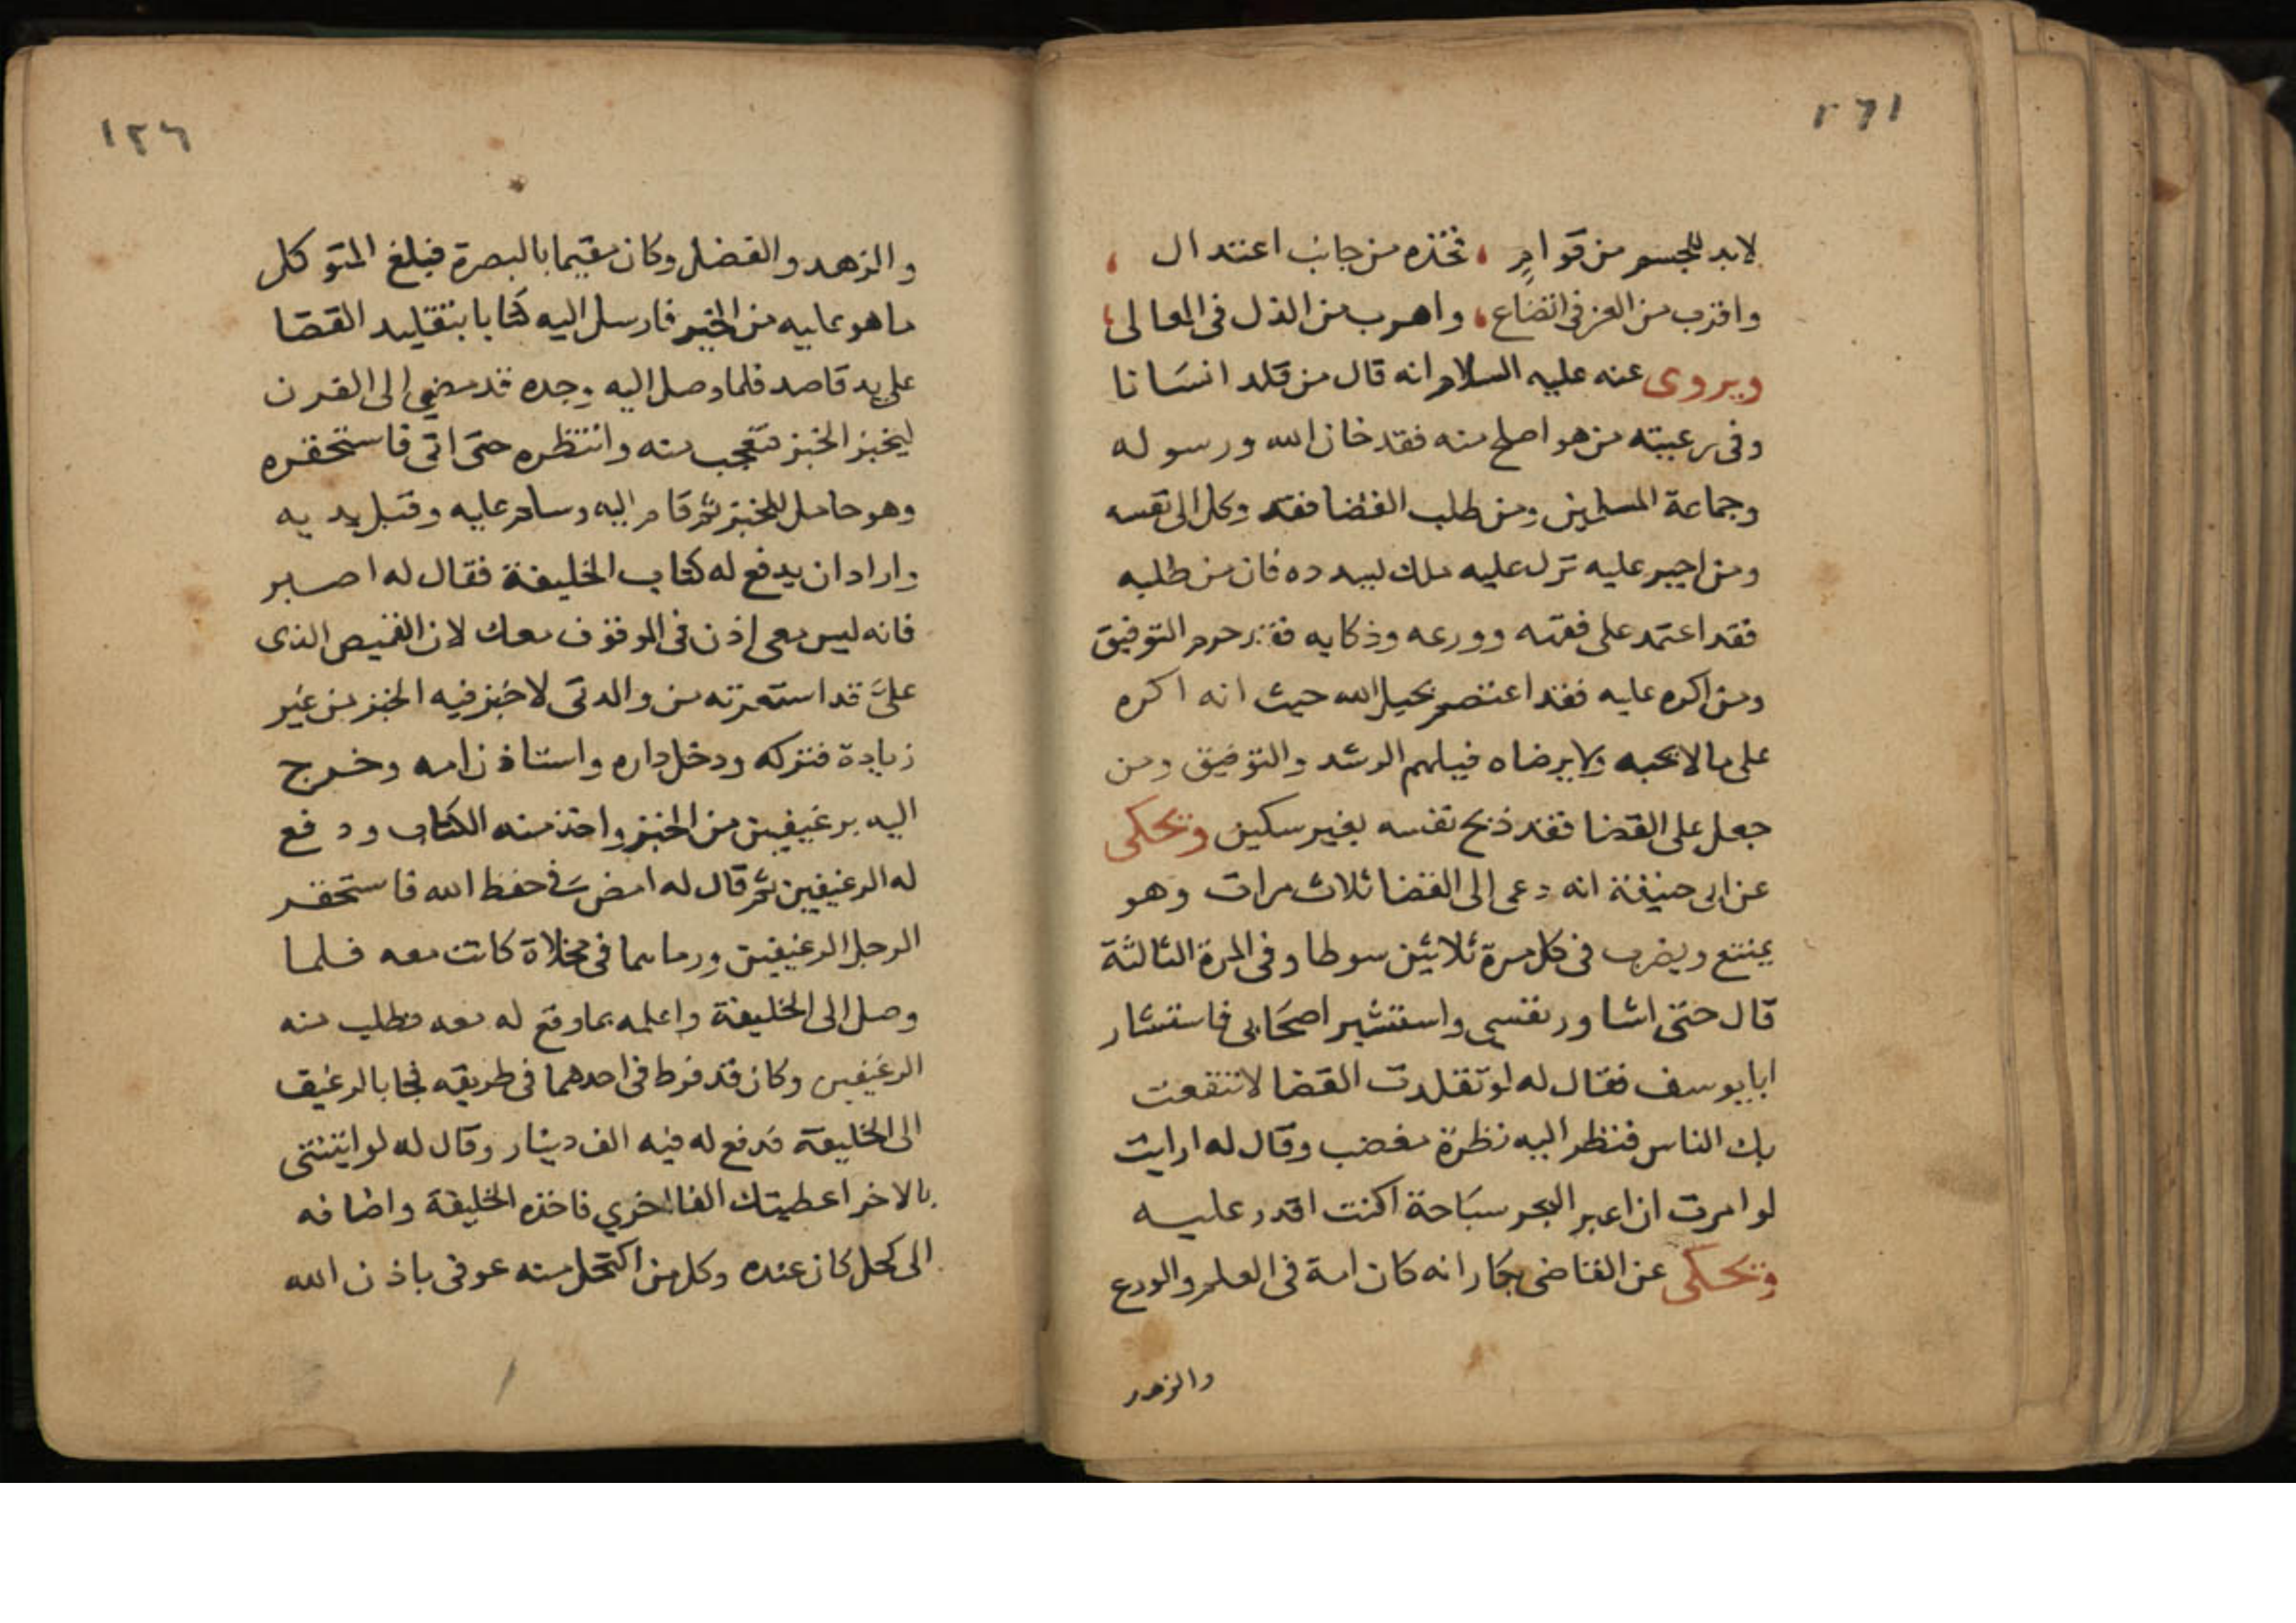 ٢٦١
لابد للجسم من قوامٍ ، فخذه من جانب اعتدال ،
واقترب من العز فى اتضاع ، واهرب من الذل فى المعالى ،
ويروى عنه عليه السلام انه قال من قلد انسَانا
وفى رعيته من هو اصلح منه فقد خان الله ورسوله
وجماعة المسلمين ومن طلب القضا فقد وكل الى نفسه
ومن اجبر عليه نزل عليه ملك ليسدده فان من طلبه
فقد اعتمد على فقهه وورعه وذكايه فقد حرم التوفيق
ومن اكره عليه فقد اعتصم بحبل الله حيث انه اكره
على ما لا يحبه ولا يرضاه فيلهم الرشد والتوفيق ومن
جعل على القضا فقد ذبح نفسه بغير سكين ويحكى
عن ابى حنيفة انه دعى الى القضا ثلاث مرات وهو
يمتنع ويضرب فى كل مرة ثلاثين سوطا وفى المرة الثالثة
قال حتى اشاور نفسى واستشير اصحَابى فاستشار
ابا يوسف فقال له لو تقلدت القضا لانتفعت
بك الناس فنظر اليه نظرة مغضب وقال له ارايت
لو امرت ان اعبر البحر سبَاحة اكنت اقدر عليه
ويحكى عن القاضى بكار انه كان امة فى العلم والورع
والزهد
١٢٦
والزهد والفضل وكان مقيما بالبصرة فبلغ المتوكل
ما هو عليه من الخير فارسل اليه كتابا بتقليد القضا
على يد قاصد فلما وصل اليه وجده قد مضى الى الفرن
ليخبز الخبز فتعجب منه وانتظره حتى اتى فاستحقره
وهو حامل للخبز ثم قام اليه وسلم عليه وقبل يديه
واراد ان يدفع له كتاب الخليفة فقال له اصبر
فانه ليس معى اذن فى الوقوف معك لان القميص الذى
علىَّ قد استعرته من والدتى لاخبز فيه الخبز من غير
زيادة فتركه ودخل داره واستاذن امه وخرج
اليه برغيفين من الخبز واخذ منه الكتاب ودفع
له الرغيفين ثم قال له امض فى حفظ الله فاستحقر
الرجل الرغيفين ورماهما فى مخلاة كانت معه فلما
وصل الى الخليفة واعلمه بما وقع له معه فطلب منه
الرغيفين وكان قد فرط فى احدهما فى طريقه فجا بالرغيف
الى الخليفة فدفع له فيه الف دينار وقال له لو اتيتنى
بالاخر اعطيتك الفا اخري فاخذه الخليفة واضافه
الى كحل كان عنده وكل من اكتحل منه عوفى باذن الله